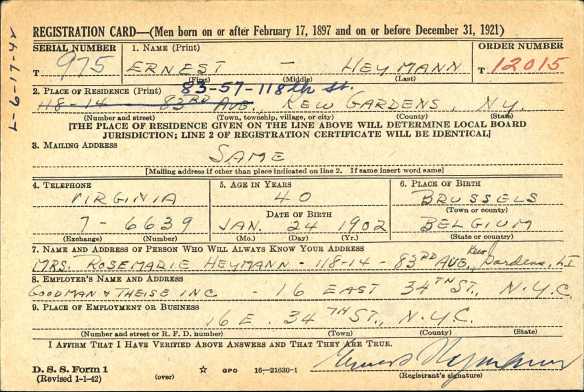 REGISTRATION CARD—(Men born on or after February 17, 1897 and on or before December 31, 1921)
SERIAL NUMBER
1. NAME (Print)
ORDER NUMBER
T 975
ERNEST — HEYMANN
T 12015
(First) (Middle) (Last)
2. PLACE OF RESIDENCE (Print)
83-57-118th St.
118-14 — 83RD AVE., KEW GARDENS, N.Y.
(Number and street) (Town, township, village, or city) (County) (State)
[THE PLACE OF RESIDENCE GIVEN ON THE LINE ABOVE WILL DETERMINE LOCAL BOARD
JURISDICTION; LINE 2 OF REGISTRATION CERTIFICATE WILL BE IDENTICAL]
3. MAILING ADDRESS
SAME
[Mailing address if other than place indicated on line 2. If same insert word same]
4. TELEPHONE
5. AGE IN YEARS
6. PLACE OF BIRTH
VIRGINIA
40
BRUSSELS
DATE OF BIRTH
(Town or county)
7-6639
JAN. 24 1902
BELGIUM
(Exchange) (Number)
(Mo.) (Day) (Yr.)
(State or country)
7. NAME AND ADDRESS OF PERSON WHO WILL ALWAYS KNOW YOUR ADDRESS
MRS. ROSEMARIE HEYMANN - 118-14 - 83RD AVE, Kew Gardens, L I
8. EMPLOYER'S NAME AND ADDRESS
GOODMAN & THEISE INC - 16 EAST 34TH ST., N.Y.C.
9. PLACE OF EMPLOYMENT OR BUSINESS
16 E. 34TH ST., N.Y.C.
(Number and street or R. F. D. number) (Town) (County) (State)
I AFFIRM THAT I HAVE VERIFIED ABOVE ANSWERS AND THAT THEY ARE TRUE.
D. S. S. Form 1
(Revised 1-1-42)
(over)
☆ GPO 16—21630-1
(Registrant's signature)
L-6-17-42